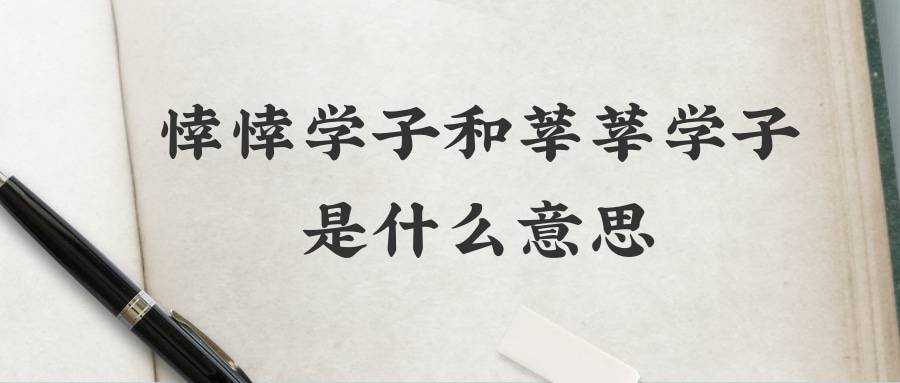 悻悻学子和莘莘学子
是什么意思